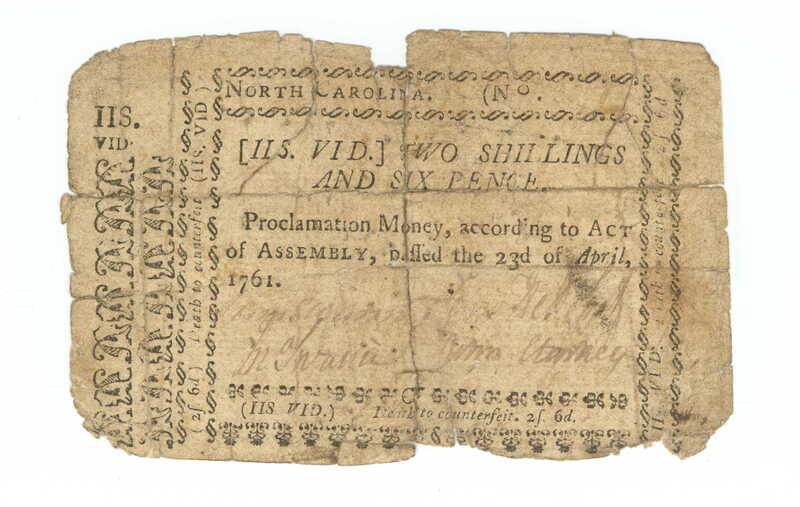 IIS.
VID.
NORTH CAROLINA. (No.
[IIS. VID.] TWO SHILLINGS
AND SIX PENCE.
Proclamation Money, according to ACT
of ASSEMBLY, paſſed the 23d of April,
1761.
(IIS. VID.) Death to counterfeit. 2ſ. 6d.
2ſ. 6d) Death to counterfeit (IIS. VID)
IIS. VID. Death to counterfeit 2ſ 6d